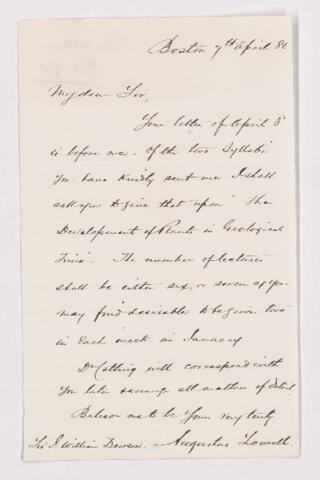 Boston 7th April 86
My dear Sir,
Your letter of April 5
is before me. Of the two Syllabi
you have kindly sent me I shall
ask you to give that upon "The
Development of Plants in Geological
Time". The number of lectures
shall be either six or seven as you
may find desirable to be given two
in each week in January
Dr Cotting will correspond with
you later & arrange all matters of detail
Believe me to be Yours very truly
Sir J. William Dawson. Augustus Lowell